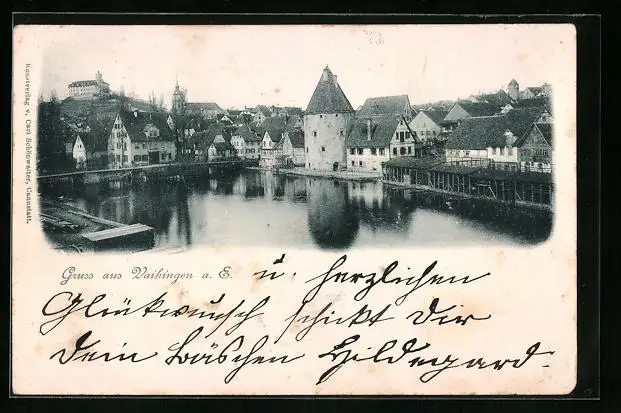 Kunstverlag v. Carl Schönwalter, Cannstatt.
Gruss aus Vaihingen a. E.
u. herzlichen
Glückwunsch schickt Dir
dein Bäschen Hildegard.